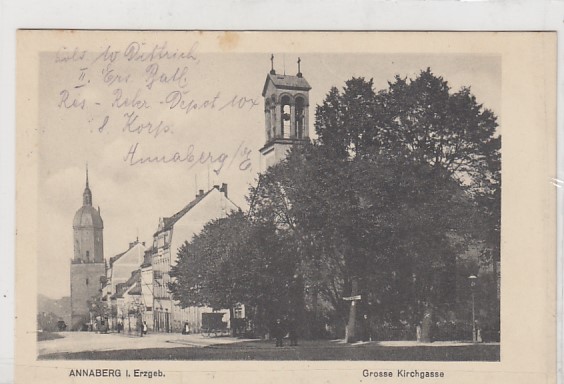 Dittrich
II. Ers Batl.
Res - Rekr - Depot
8 Korp.
Annaberg /E
ANNABERG i. Erzgeb.
Grosse Kirchgasse